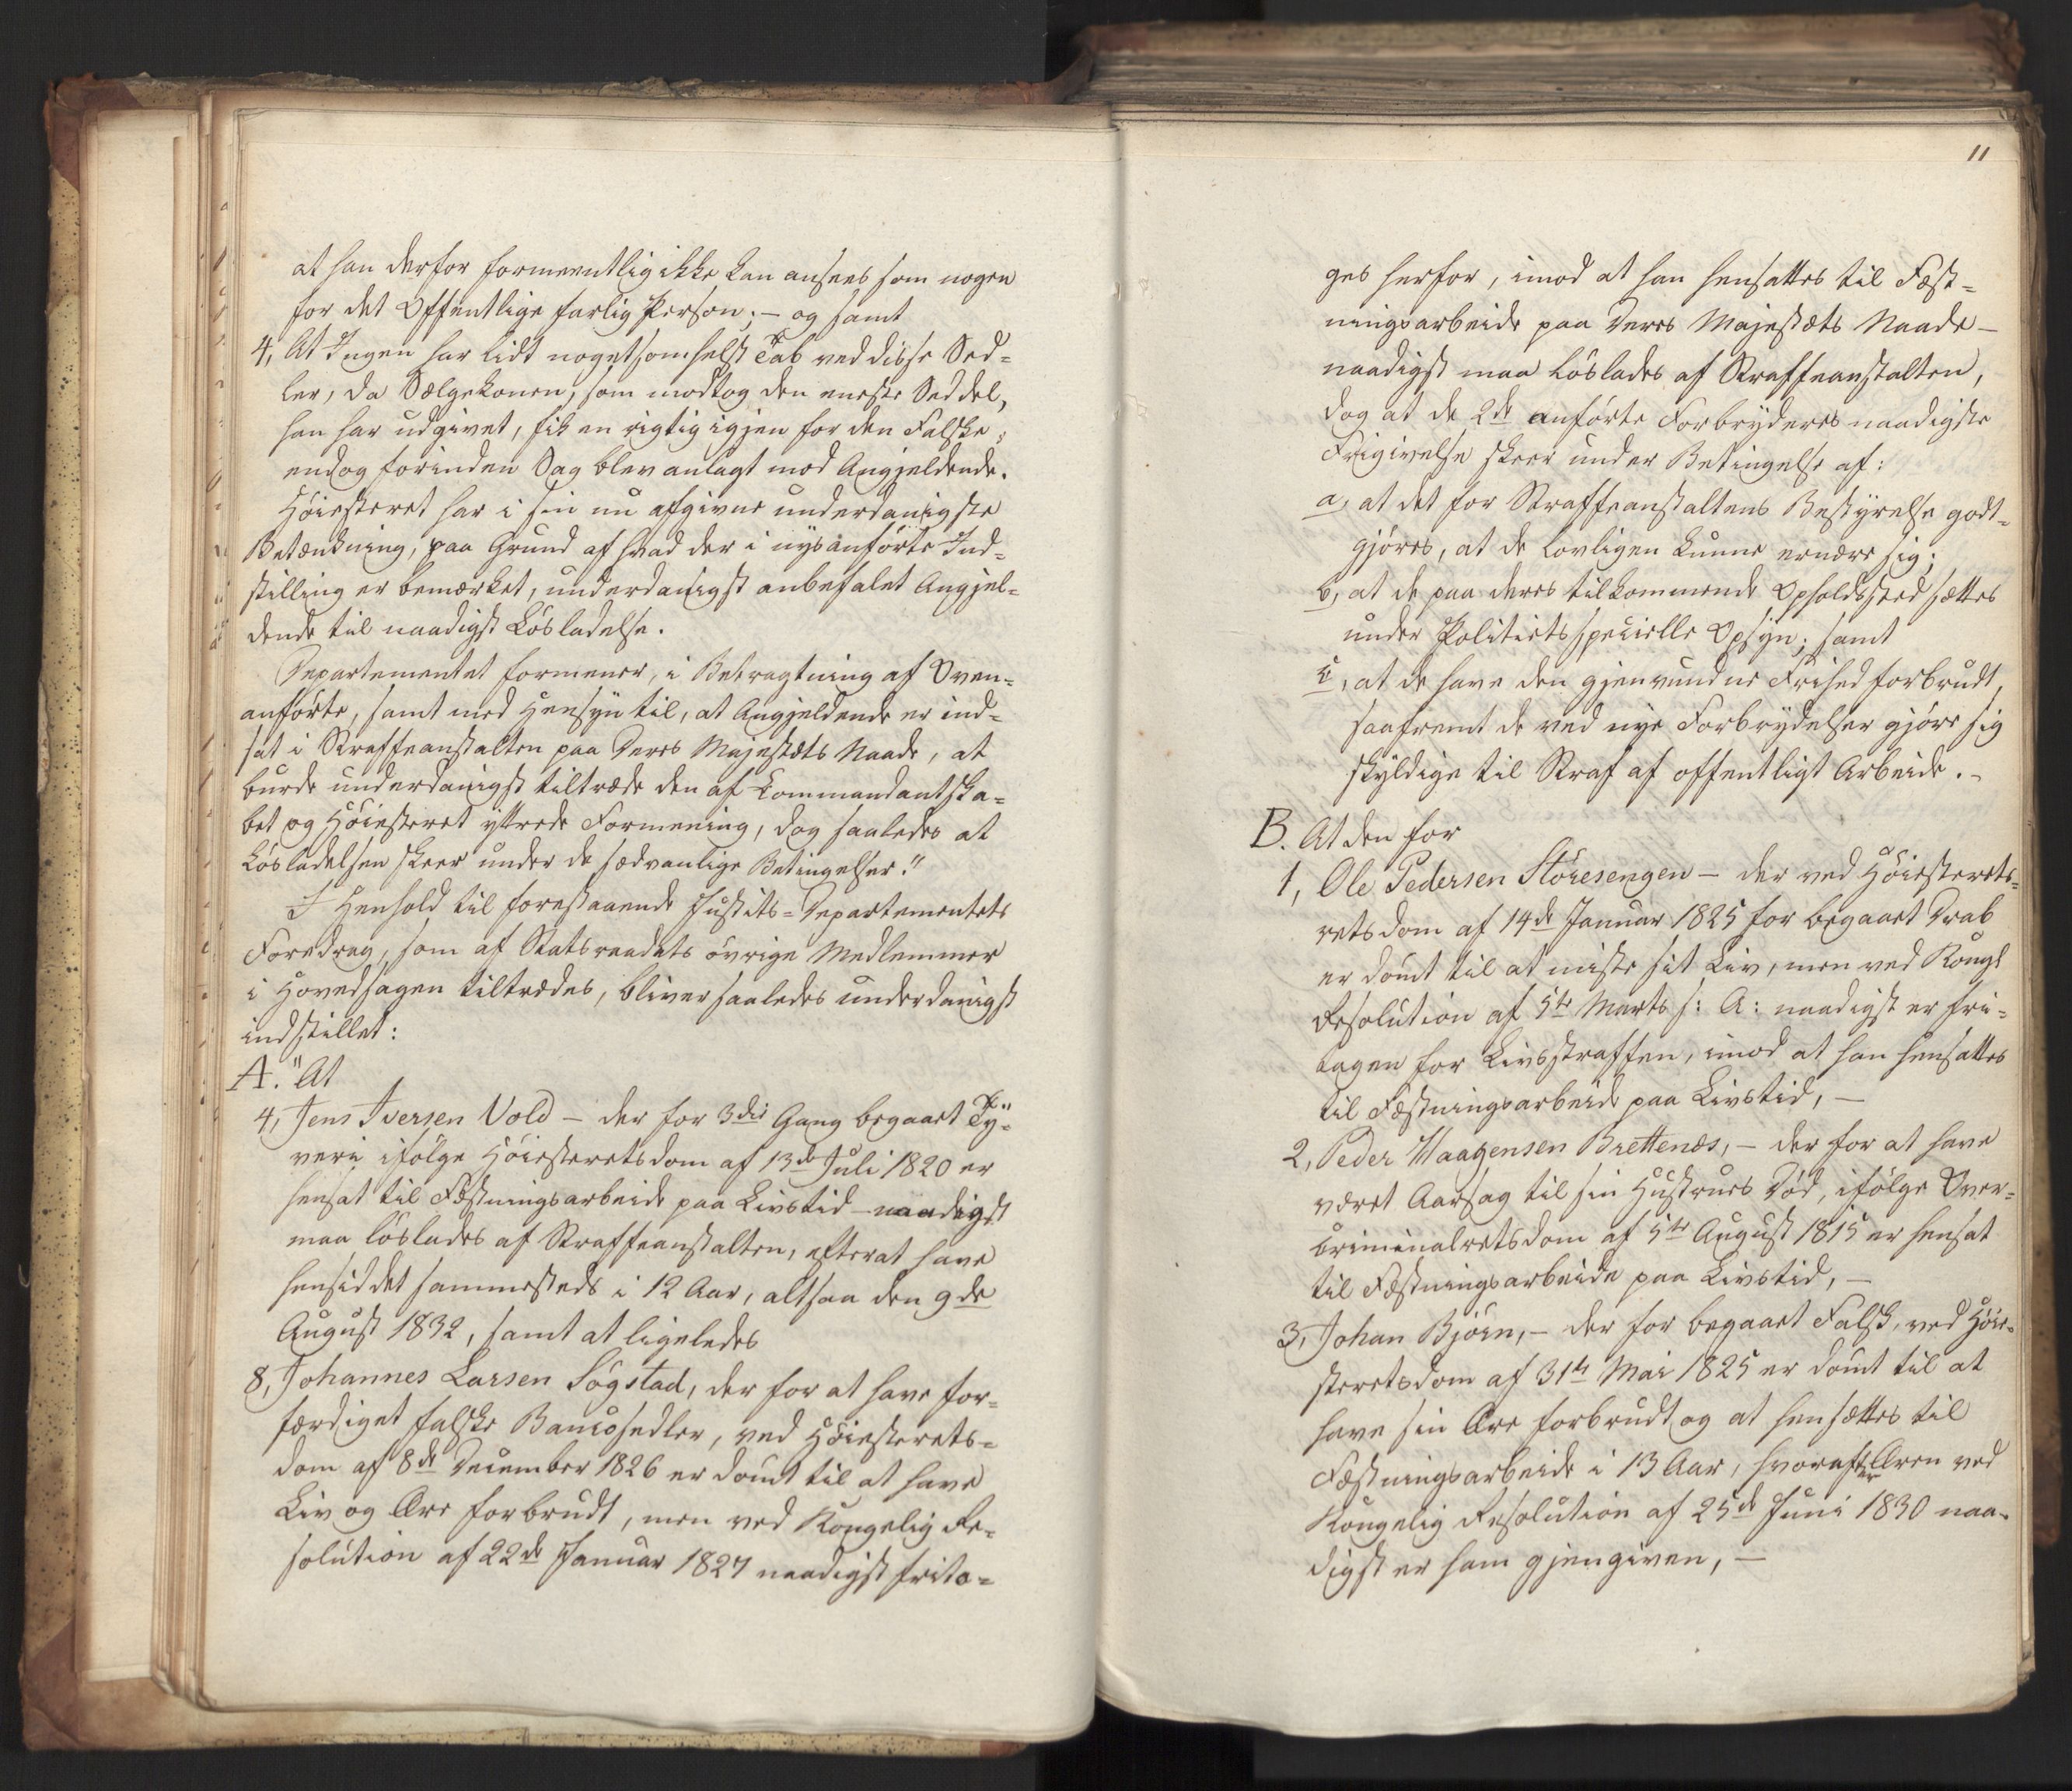 at han derfor formeentlig ikke kan ansees som nogen
for det Offentlige farlig Person; – og samt
4, At Ingen har lidt nogetsomhelst Tab ved disse Sed=
ler, da Sælgekonen, som modtog den eneste Seddel,
han har udgivet, fik en rigtig igjen for den Falske,
endog forinden Sag blev anlagt mod Angjeldende.
Høiesteret har i sin nu afgivne underdanigste
Betænkning, paa Grund af hvad der i nysanførte Ind=
stilling er bemærket, underdanigst anbefalet Angjel=
dende til naadigst Løsladelse.
Departementet formener, i Betragtning af Oven=
anførte, samt med Hensyn til, at Angjeldende er ind=
sat i Straffeanstalten paa Deres Majestæts Naade, at
burde underdanigst tiltræde den af Commandantska=
bet og Høiesteret yttrede Formening, dog saaledes at
Løsladelsen skeer under de sædvanlige Betingelser."
I Henhold til forestaaende Justits=Departementets
Foredrag, som af Statsraadets øvrige Medlemmer
i Hovedsagen tiltrædes, bliver saaledes underdanigst
indstillet:
A. "At
4, Jens Iversen Vold – der for 3die Gang begaaet Ty=
veri ifølge Høiesteretsdom af 13de Juli 1820 er
hensat til Fæstningsarbeide paa Livstid – naadigst
maa løslades af Straffeanstalten, efterat have
hensiddet sammesteds i 12 Aar, altsaa den 9de
August 1832, samt at ligeledes
8, Johannes Larsen Søgstad, der for at have for=
færdiget falske Bancosedler, ved Høiesterets=
dom af 8de December 1826 er dømt til at have
Liv og Ære forbrudt, men ved Kongelig Re=
solution af 22de Januar 1827 naadigst frita=
11
ges herfor, imod at han hensattes til Fæst=
ningsarbeide paa Deres Majestæts Naade –
naadigst maa løslades af Straffeanstalten,
dog at de 2de anførte Forbryderes naadigste
Frigivelse skeer under Betingelse af:
a, at det for Straffeanstaltens Bestyrelse godt=
gjøres, at de lovligen kunne ernære sig;
b, at de paa deres tilkommende Opholdssted sættes
under Politiets specielle Opsyn; samt
c, at de have den gjenvundne Frihed forbrudt,
saafremt de ved nye Forbrydelser gjøre sig
skyldige til Straf af offentligt Arbeide. –
B. At den for
1, Ole Pedersen Støresengen – der ved Høiesterets=
retsdom af 14de Januar 1825 for begaaet Drab
er dømt til at miste sit Liv, men ved Kongl
Resolution af 5te Marts s: A: naadigst er fri=
tagen for Livsstraffen, imod at han hensattes
til Fæstningsarbeide paa Livstid, –
2, Peder Haagensen Brettenæs, – der for at have
været Aarsag til sin Hustrues Død, ifølge Over=
criminalretsdom af 5te August 1815 er hensat
til Fæstningsarbeide paa Livstid, –
3, Johan Bjørn, – der for begaaet Falsk, ved Høie=
steretsdom af 31te Mai 1825 er dømt til at
have sin Ære forbrudt og at hensættes til
Fæstningsarbeide i 13 Aar, hvorefter Æren ved
Kongelig Resolution af 25de Juni 1830 naa=
digst er ham gjengiven, –